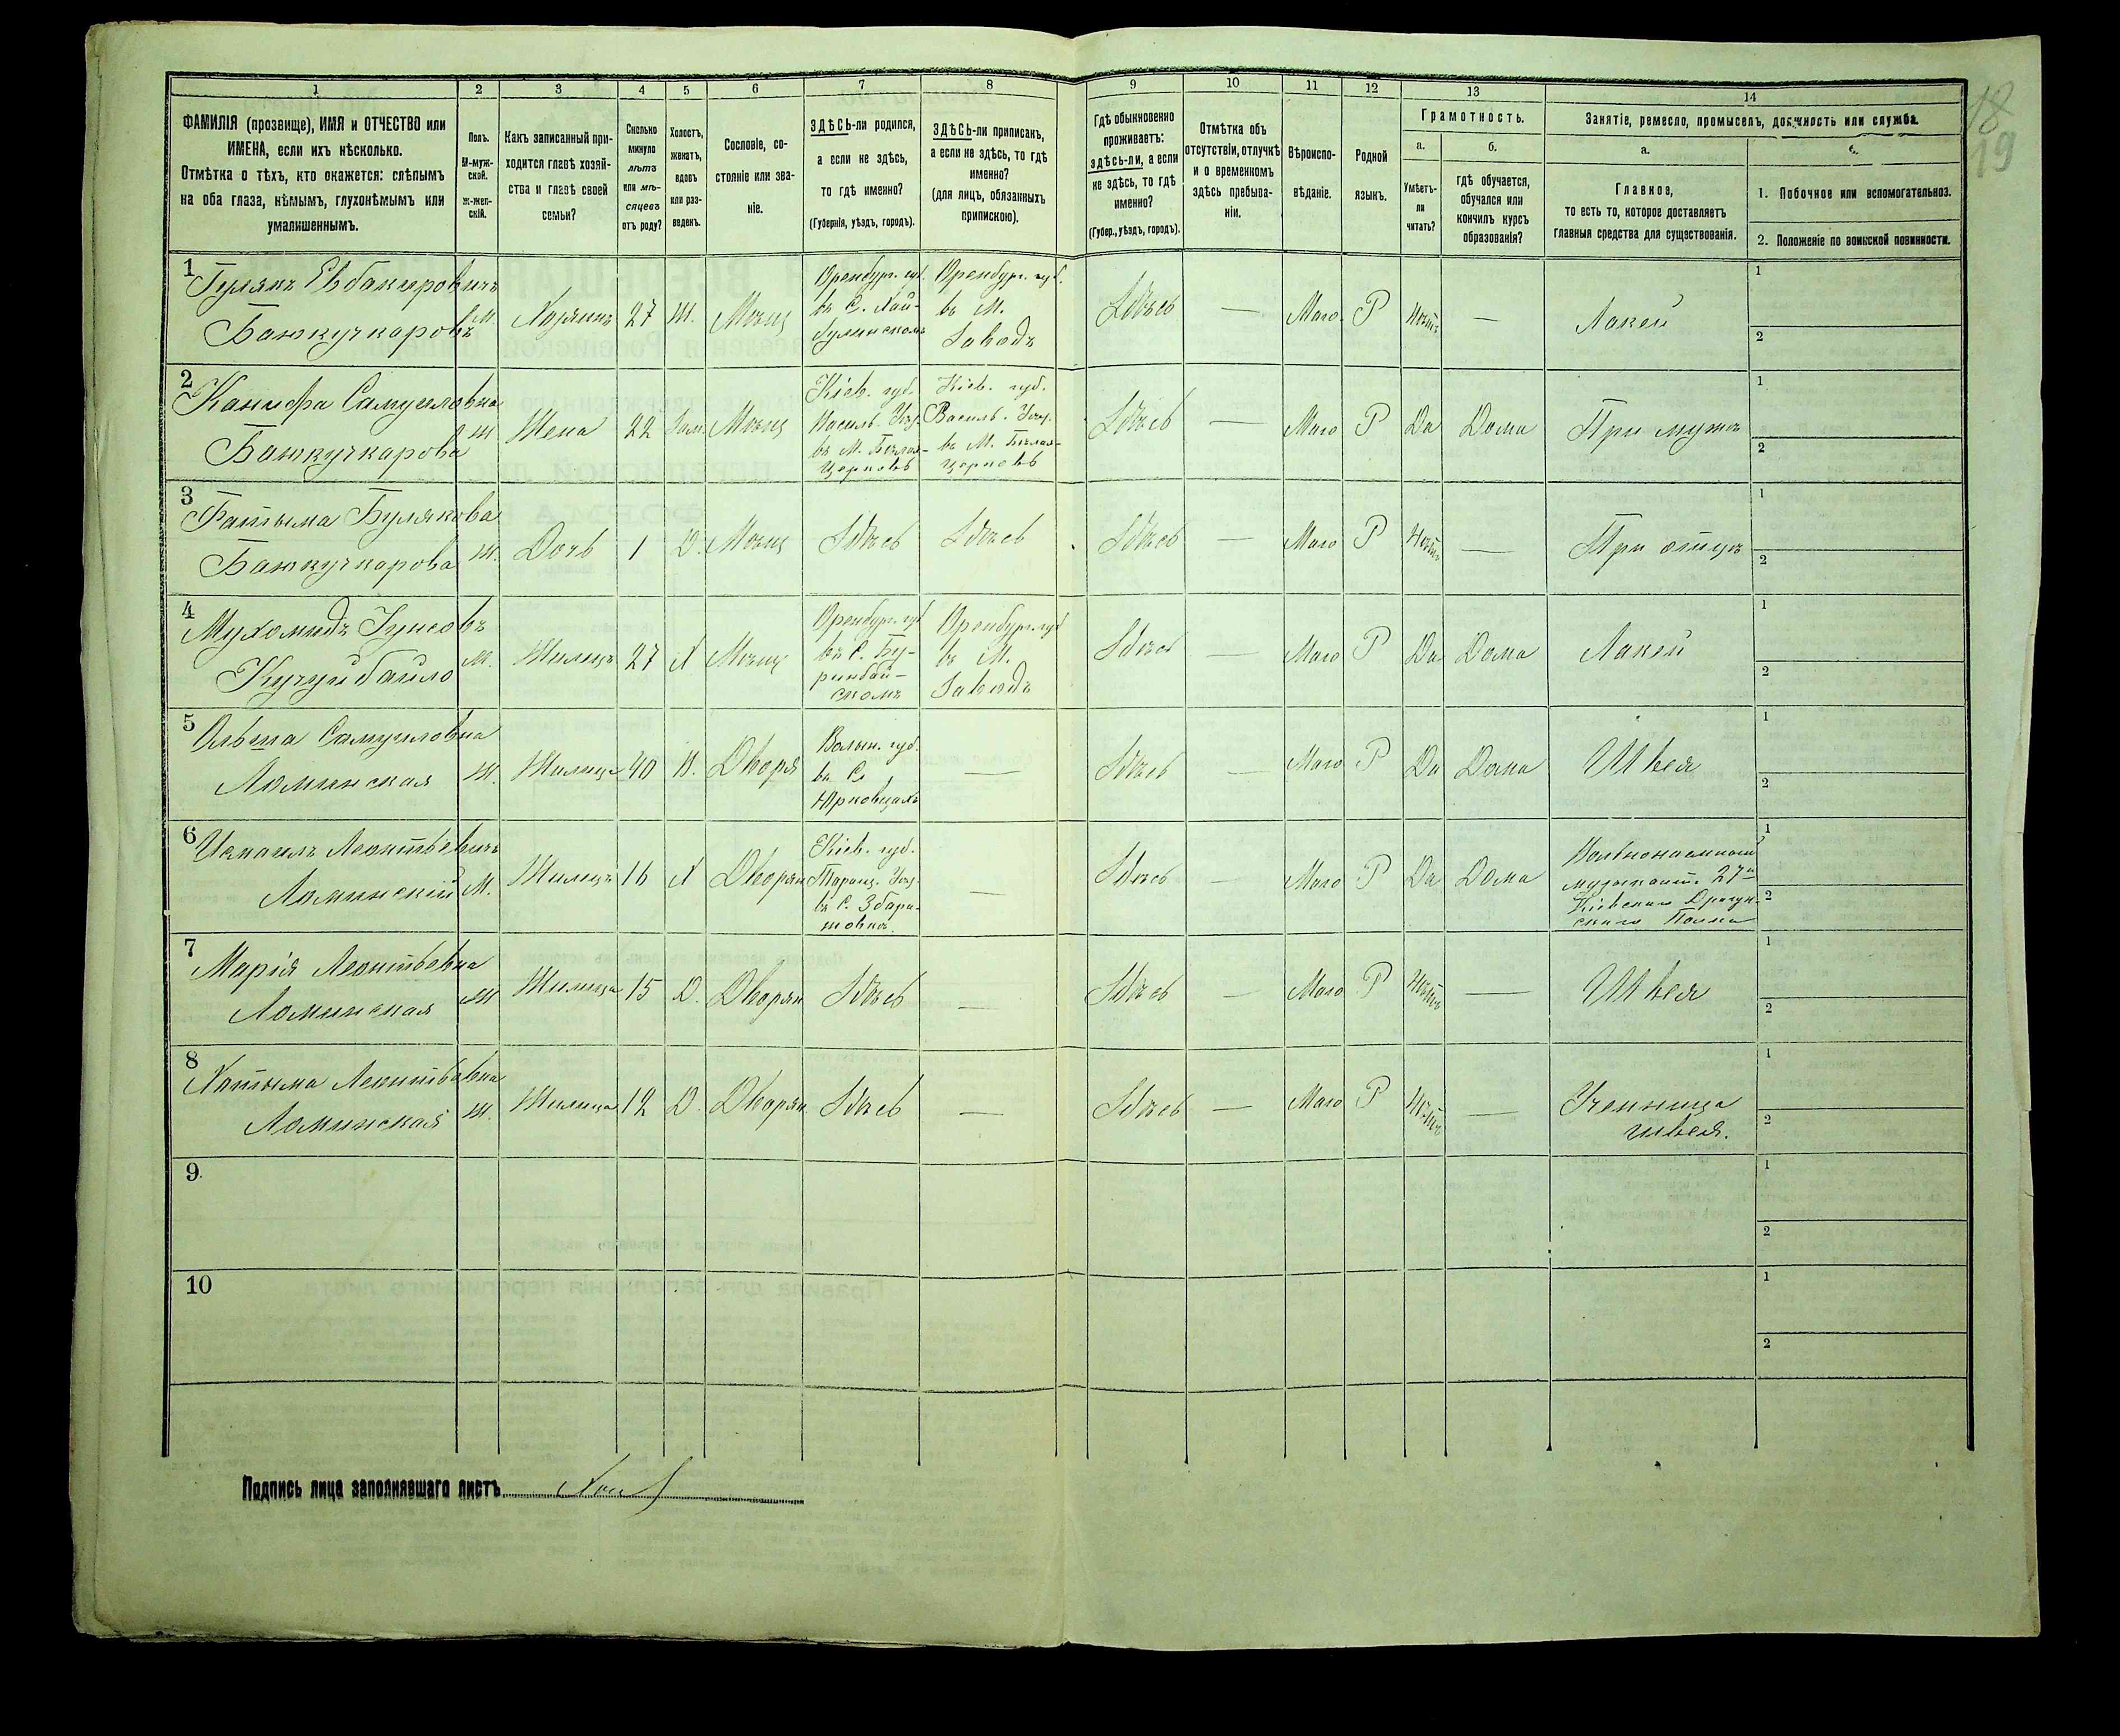 18
19
1 2 3 4 5 6 7 8 9 10 11 12 13 14
ФАМИЛІЯ (прозвище), ИМЯ и ОТЧЕСТВО или
ИМЕНА, если ихъ нѣсколько.
Отмѣтка о тѣхъ, кто окажется: слѣпымъ
на оба глаза, нѣмымъ, глухонѣмымъ или
умалишеннымъ.
Полъ.
М-муж-
ской.
Ж-жен-
скій.
Какъ записанный при-
ходится главѣ хозяй-
ства и главѣ своей
семьи?
Сколько
минуло
лѣтъ
или мѣ-
сяцевъ
отъ роду?
Холостъ,
женатъ,
вдовъ
или раз-
веденъ.
Сословіе, со-
стояніе или зва-
ніе.
ЗДѢСЬ-ли родился,
а если не здѣсь,
то гдѣ именно?
(Губернія, уѣздъ, городъ).
ЗДѢСЬ-ли приписанъ,
а если не здѣсь, то гдѣ
именно?
(для лицъ, обязанныхъ
припискою).
Гдѣ обыкновенно
проживаетъ:
здѣсь-ли, а если
не здѣсь, то гдѣ
именно?
(Губер., уѣздъ, городъ).
Отмѣтка объ
отсутствіи, отлучкѣ
и о временномъ
здѣсь пребыва-
ніи.
Вѣроиспо-
вѣданіе.
Родной
языкъ.
Грамотность.
а.
Умѣетъ-
ли
читать?
б.
гдѣ обучается,
обучался или
кончилъ курсъ
образованія?
Занятіе, ремесло, промыселъ, должность или служба.
а.
Главное,
то есть то, которое доставляетъ
главныя средства для существованія.
1. Побочное или вспомогательное.
2. Положеніе по воинской повинности.
1
Бажкучкаровъ
М. Хозяинъ 27 Ж. Мѣщ
Оренбург. губ.
Оренбург. губ.
въ М.
Заводъ
Здѣсь — Маго. Р Нѣтъ — Лакей
1
2
2
Канифа Самуиловна
Бажкучкарова
Ж Жена 22 Зам. Мѣщ
Кіев. губ.
Василь. Уѣз.
въ М. Бѣлая-
Церковь
Кіев. губ.
Василь. Уѣз.
въ М. Бѣлая-
Церковь
Здѣсь — Маго Р Да Дома При мужѣ
1
2
3
Фатыма Булякова
Бажкучкарова
Ж. Дочь 1 Д. Мѣщ Здѣсь Здѣсь Здѣсь — Маго Р Нѣтъ — При отцѣ
1
2
4
М. Жилецъ 27 Х Мѣщ
Оренбург. губ
въ С. Бу-
ринбай-
скомъ
Оренбург. губ
въ М.
Заводъ
Здѣсь — Маго Р Да Дома Лакей
1
2
5
Самуиловна
Ломинская
Ж. Жилица 40 В. Дворя
Волын. губ.
въ С.
Юрковцахъ
— Здѣсь — Маго Р Да Дома Швея
1
2
6
Исмаилъ Леонтьевичъ
Ломинскій
М. Жилецъ 16 Х Дворян
Кіев. губ.
Таращ. Уѣз.
— Здѣсь — Маго Р Да Дома
Вольнонаемный
музыкант. 27го
Кіевскаго Драгун-
скаго Полка
1
2
7
Марія Леонтьевна
Ломинская
Ж Жилица 15 Д. Дворян Здѣсь — Здѣсь — Маго Р Нѣтъ — Швея
1
2
8
Хатыма Леонтьевна
Ломинская
Ж. Жилица 12 Д. Дворян Здѣсь — Здѣсь — Маго Р Нѣтъ —
Ученица
швея.
1
2
9
1
2
10
1
2
Подпись лица заполнявшаго листъ